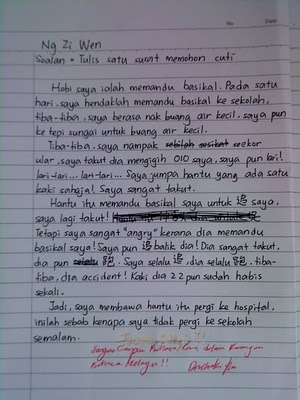 No
Date
Ng Zi Wen
Soalan • Tulis satu surat memohon cuti
Hobi saya ialah memandu basikal. Pada satu
hari, saya hendaklah memandu basikal ke sekolah,
tiba-tiba, saya berasa nak buang air kecil, saya pun
ke tepi sungai untuk buang air kecil.
Tiba-tiba, saya nampak sebilah sesikat seekor
ular, saya takut dia mengigih OIO saya, saya pun lari!
lari-lari... lari-lari... Saya jumpa hantu yang ada satu
kaki sahaja! Saya sangat takut.
Hantu itu memandu basikal saya untuk 追 saya,
saya lagi takut!
Tetapi saya sangat "angry" kerana dia memandu
basikal saya! Saya pun 追 balik dia! Dia sangat takut,
dia pun selalu 跑. Saya selalu 追, dia selalu 跑, tiba-
tiba, dia accident! Kaki dia 22 pun sudah habis
sekali.
Jadi, saya membawa hantu itu pergi ke hospital,
inilah sebab kenapa saya tidak pergi ke sekolah
semalam.
Jangan Campur Bahasa Cina dalam Karangan
Bahasa Melayu!!